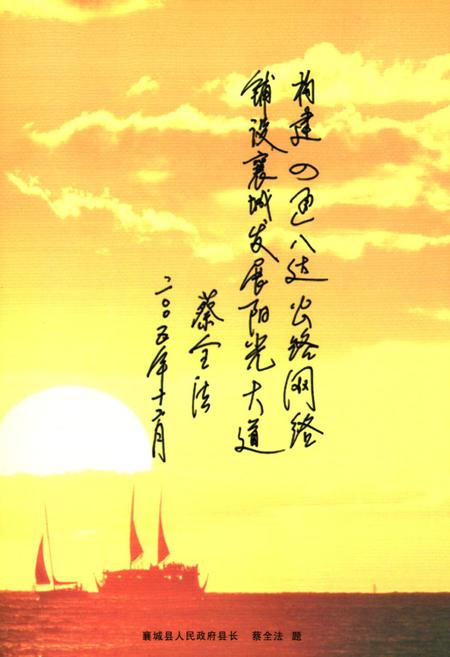 构建四通八达公路网络
铺设襄城发展阳光大道
蔡全法
二〇〇五年十二月
襄城县人民政府县长 蔡全法 题